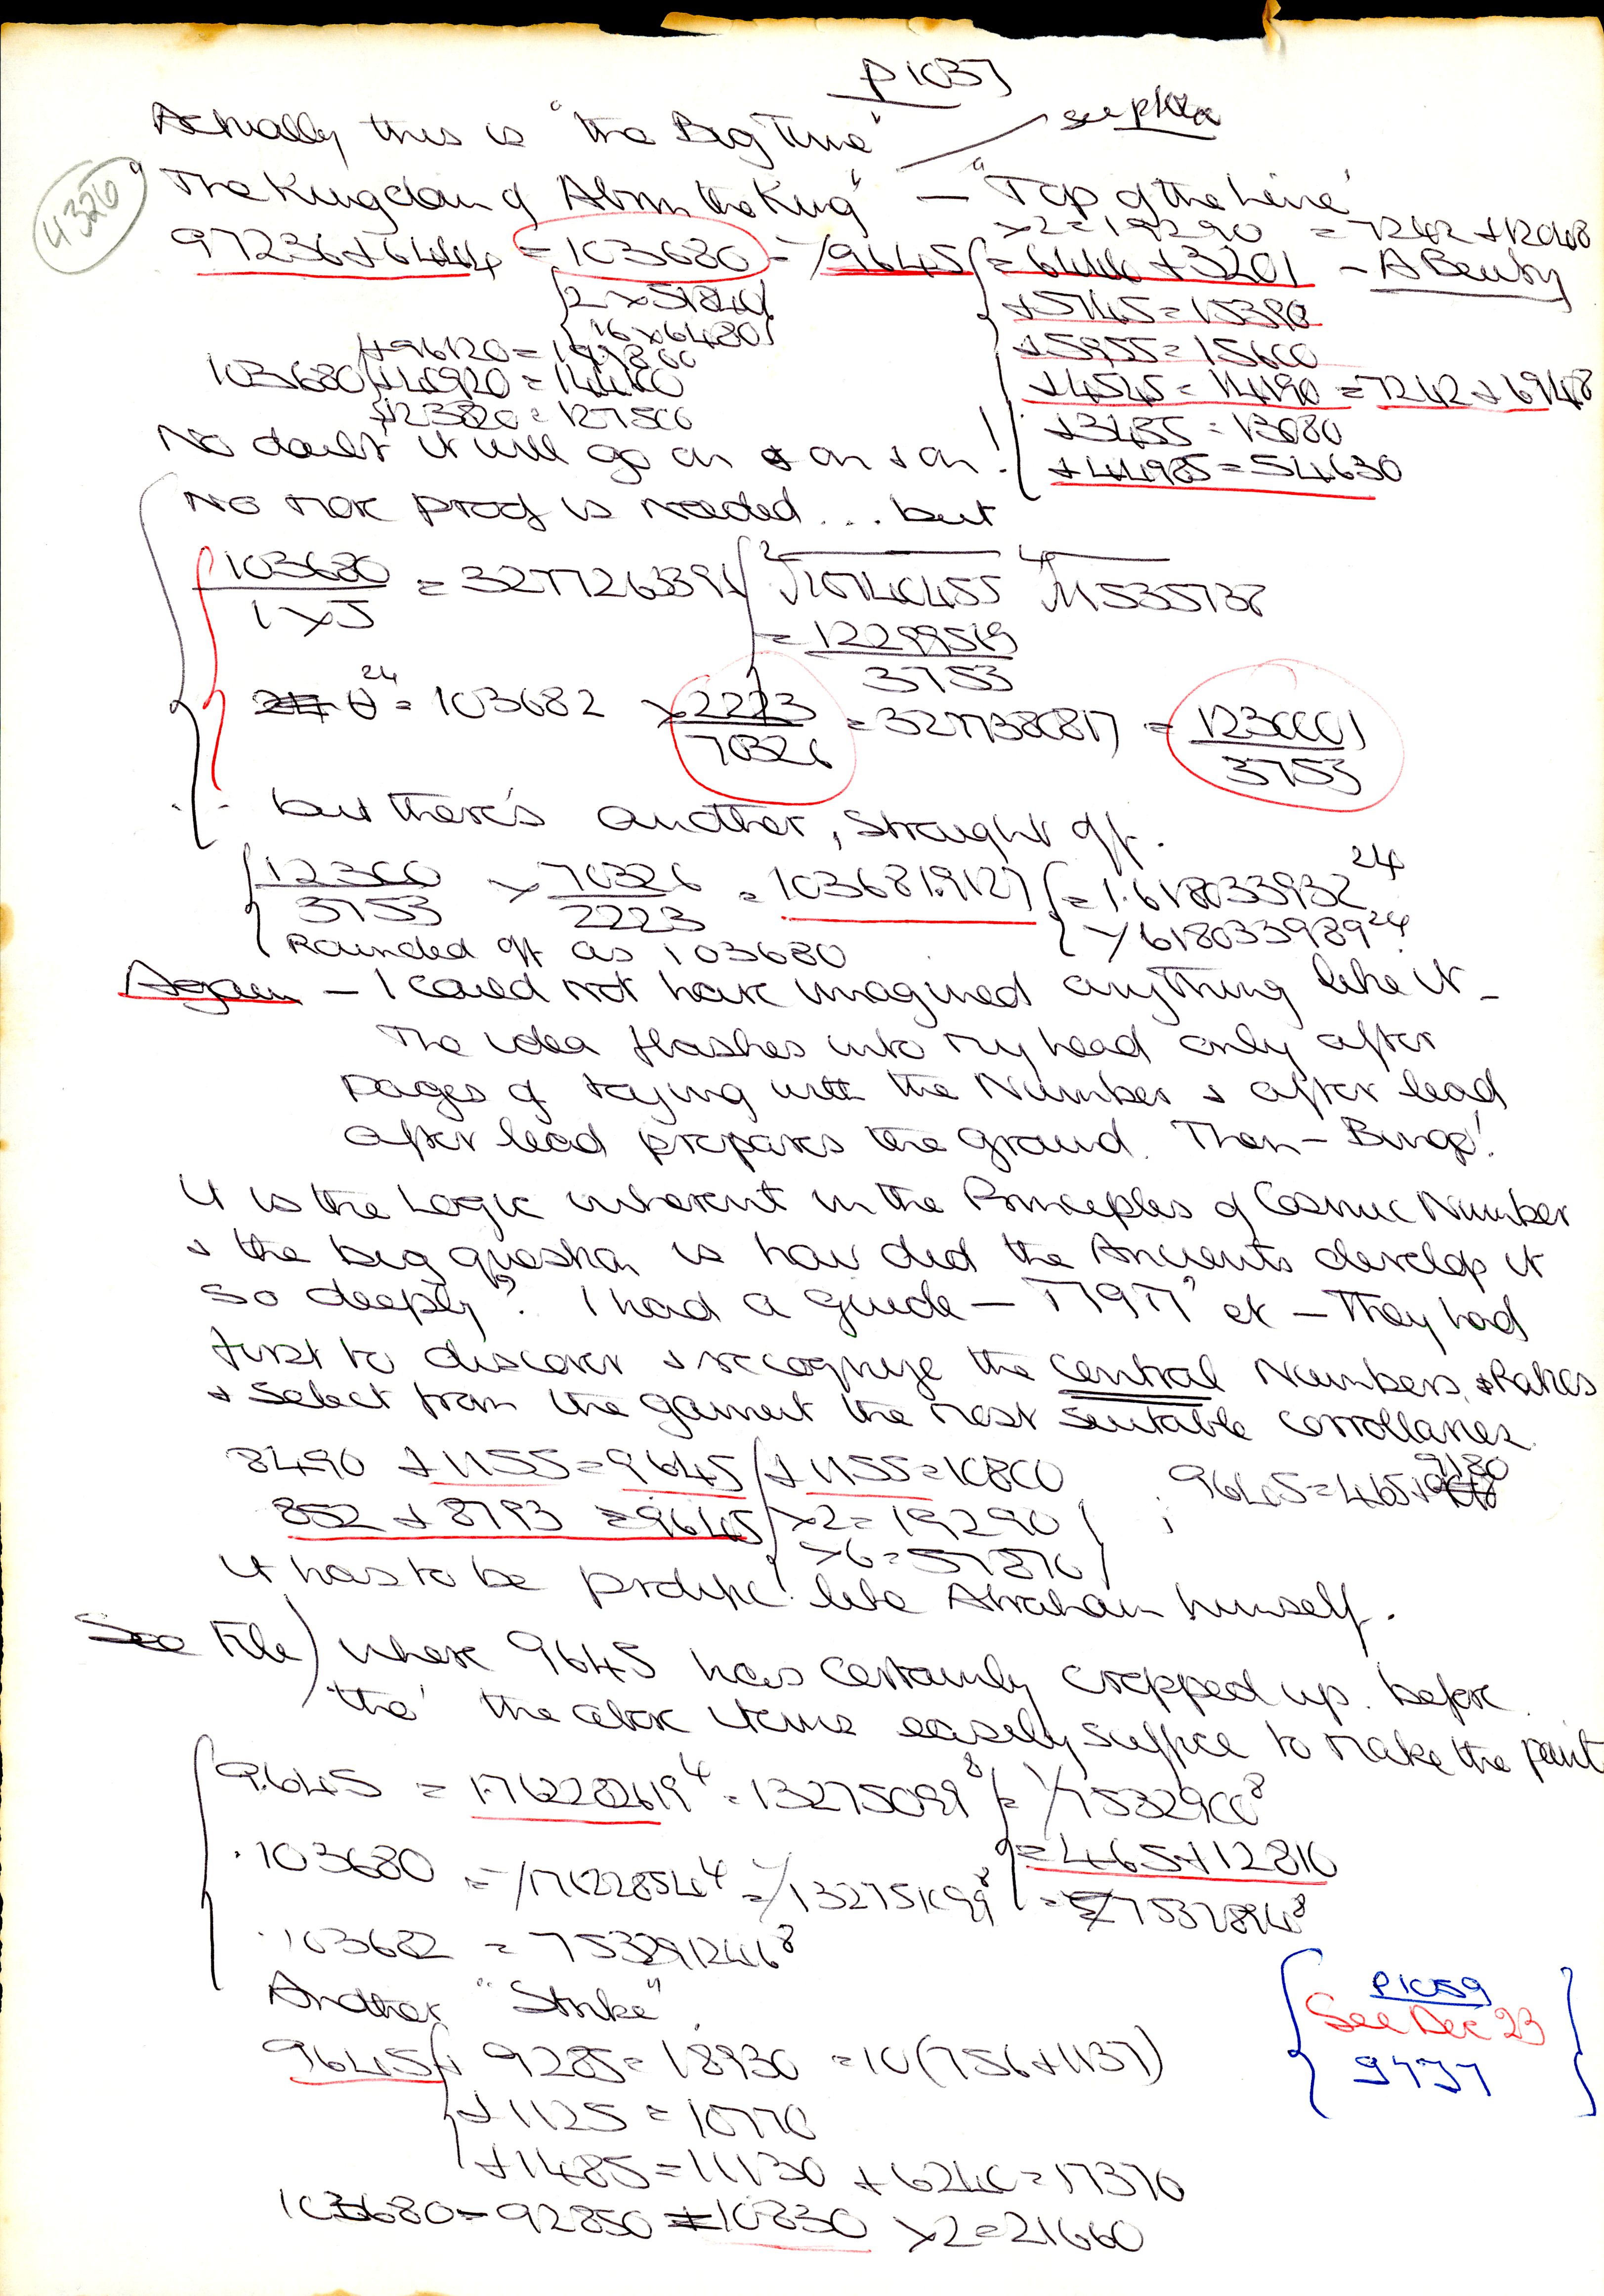 p1037
Actually this is "the Big Time"
see p
4320
"The Kingdom of Abm the King" — "Top of the Line"
×2=19290 = 7242+12048
97236+6444 = 103680 = 1/9645 = 6444+3201 - A Beauty
{2×51840
{16×6480
+5745=15390
+5955=15600
+96120=199800
103680 +40920=144600
+4545=14190=7242+6948
+23820=127500
+3435=13080
No doubt it will go on & on & on!
+44985=54630
No more proof is needed ... but
103680 / 1×5 = 327726339 2√10740455 4√11535738
= 12299519 / 3753
θ24 = 103682 × 2223 / 70326 = 3277380817 = 1230001 / 3753
but there's another, straight off.
12300 / 3753 × 70326 / 2223 = 103681.9127 = 1.618033932 24
1/618033989 24
Rounded off as 103680
Again — I could not have imagined anything like it —
The idea flashes into my head only after
pages of toying with the Number & after lead
after lead prepares the ground. Then — Bingo!
It is the Logic inherent in the Principles of Cosmic Number
& the big question is how did the Ancients develop it
so deeply? I had a guide — et — They had
first to discover & recognize the central Numbers, &
& select from the gamut the most suitable corrollaries.
8490 + 1155 = 9645 + 1155 = 10800 ; 9645=465+9180
852 + 8793 = 9645 ×2 = 19290
×6 = 57870
It has to be prolific! like Abraham himself.
See File) where 9645 has certainly cropped up before
tho' the above items easily suffice to make the point
9.645 = 1.762282619 4 = 13275099 8 = 1/7532900 8
= 465+12810
.103680 = 1/176228540 4 = 1/132751099 8 = 75328940 8
.103682 = 753291246 8
Another "Strike"
9645 + 9285 = 18930 = 10(756+1137)
+1125 = 10770
+1485 = 11130 + 6240 = 17370
103680 - 92850 = 10830 ×2=21660
p1059
See Dec 23